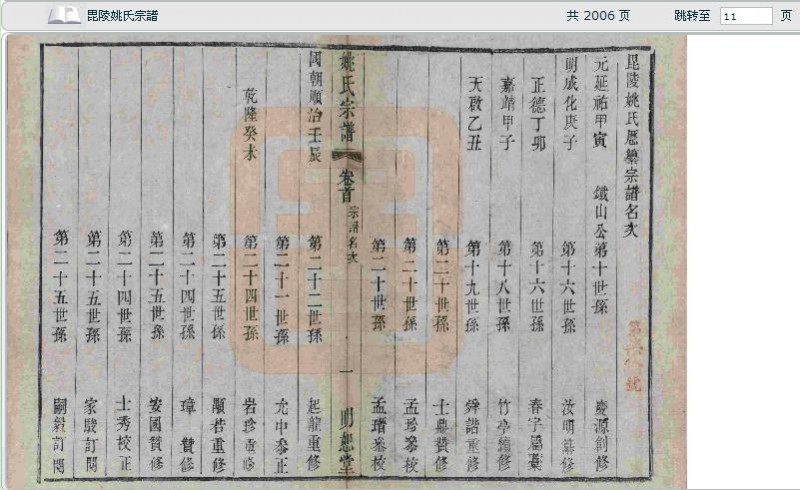 毘陵姚氏宗譜
共 2006 页
跳转至 11 页
毘陵姚氏歷纂宗譜名次
元延祐甲寅 鐵山公第十世孫 慶源創修
明成化庚子 第十六世孫 汝明纂修
正德丁卯 第十六世孫 春宇屬藁
嘉靖甲子 第十八世孫 竹亭續修
天啟乙丑 第十九世孫 舜諧重修
第二十世孫 士鼎贊修
第二十世孫 孟珍叅校
第二十世孫 孟瑨叅校
姚氏宗譜 卷首 宗譜名次 一 明恕堂
國朝順治壬辰 第二十二世孫 起龍重修
第二十一世孫 允中叅正
乾隆癸未 第二十四世孫 岩珍重修
第二十五世孫 顺若重修
第二十四世孫 璋贊修
第二十五世孫 安國贊修
第二十四世孫 士秀校正
第二十五世孫 家駿訂閱
第二十五世孫 嗣毅訂閱